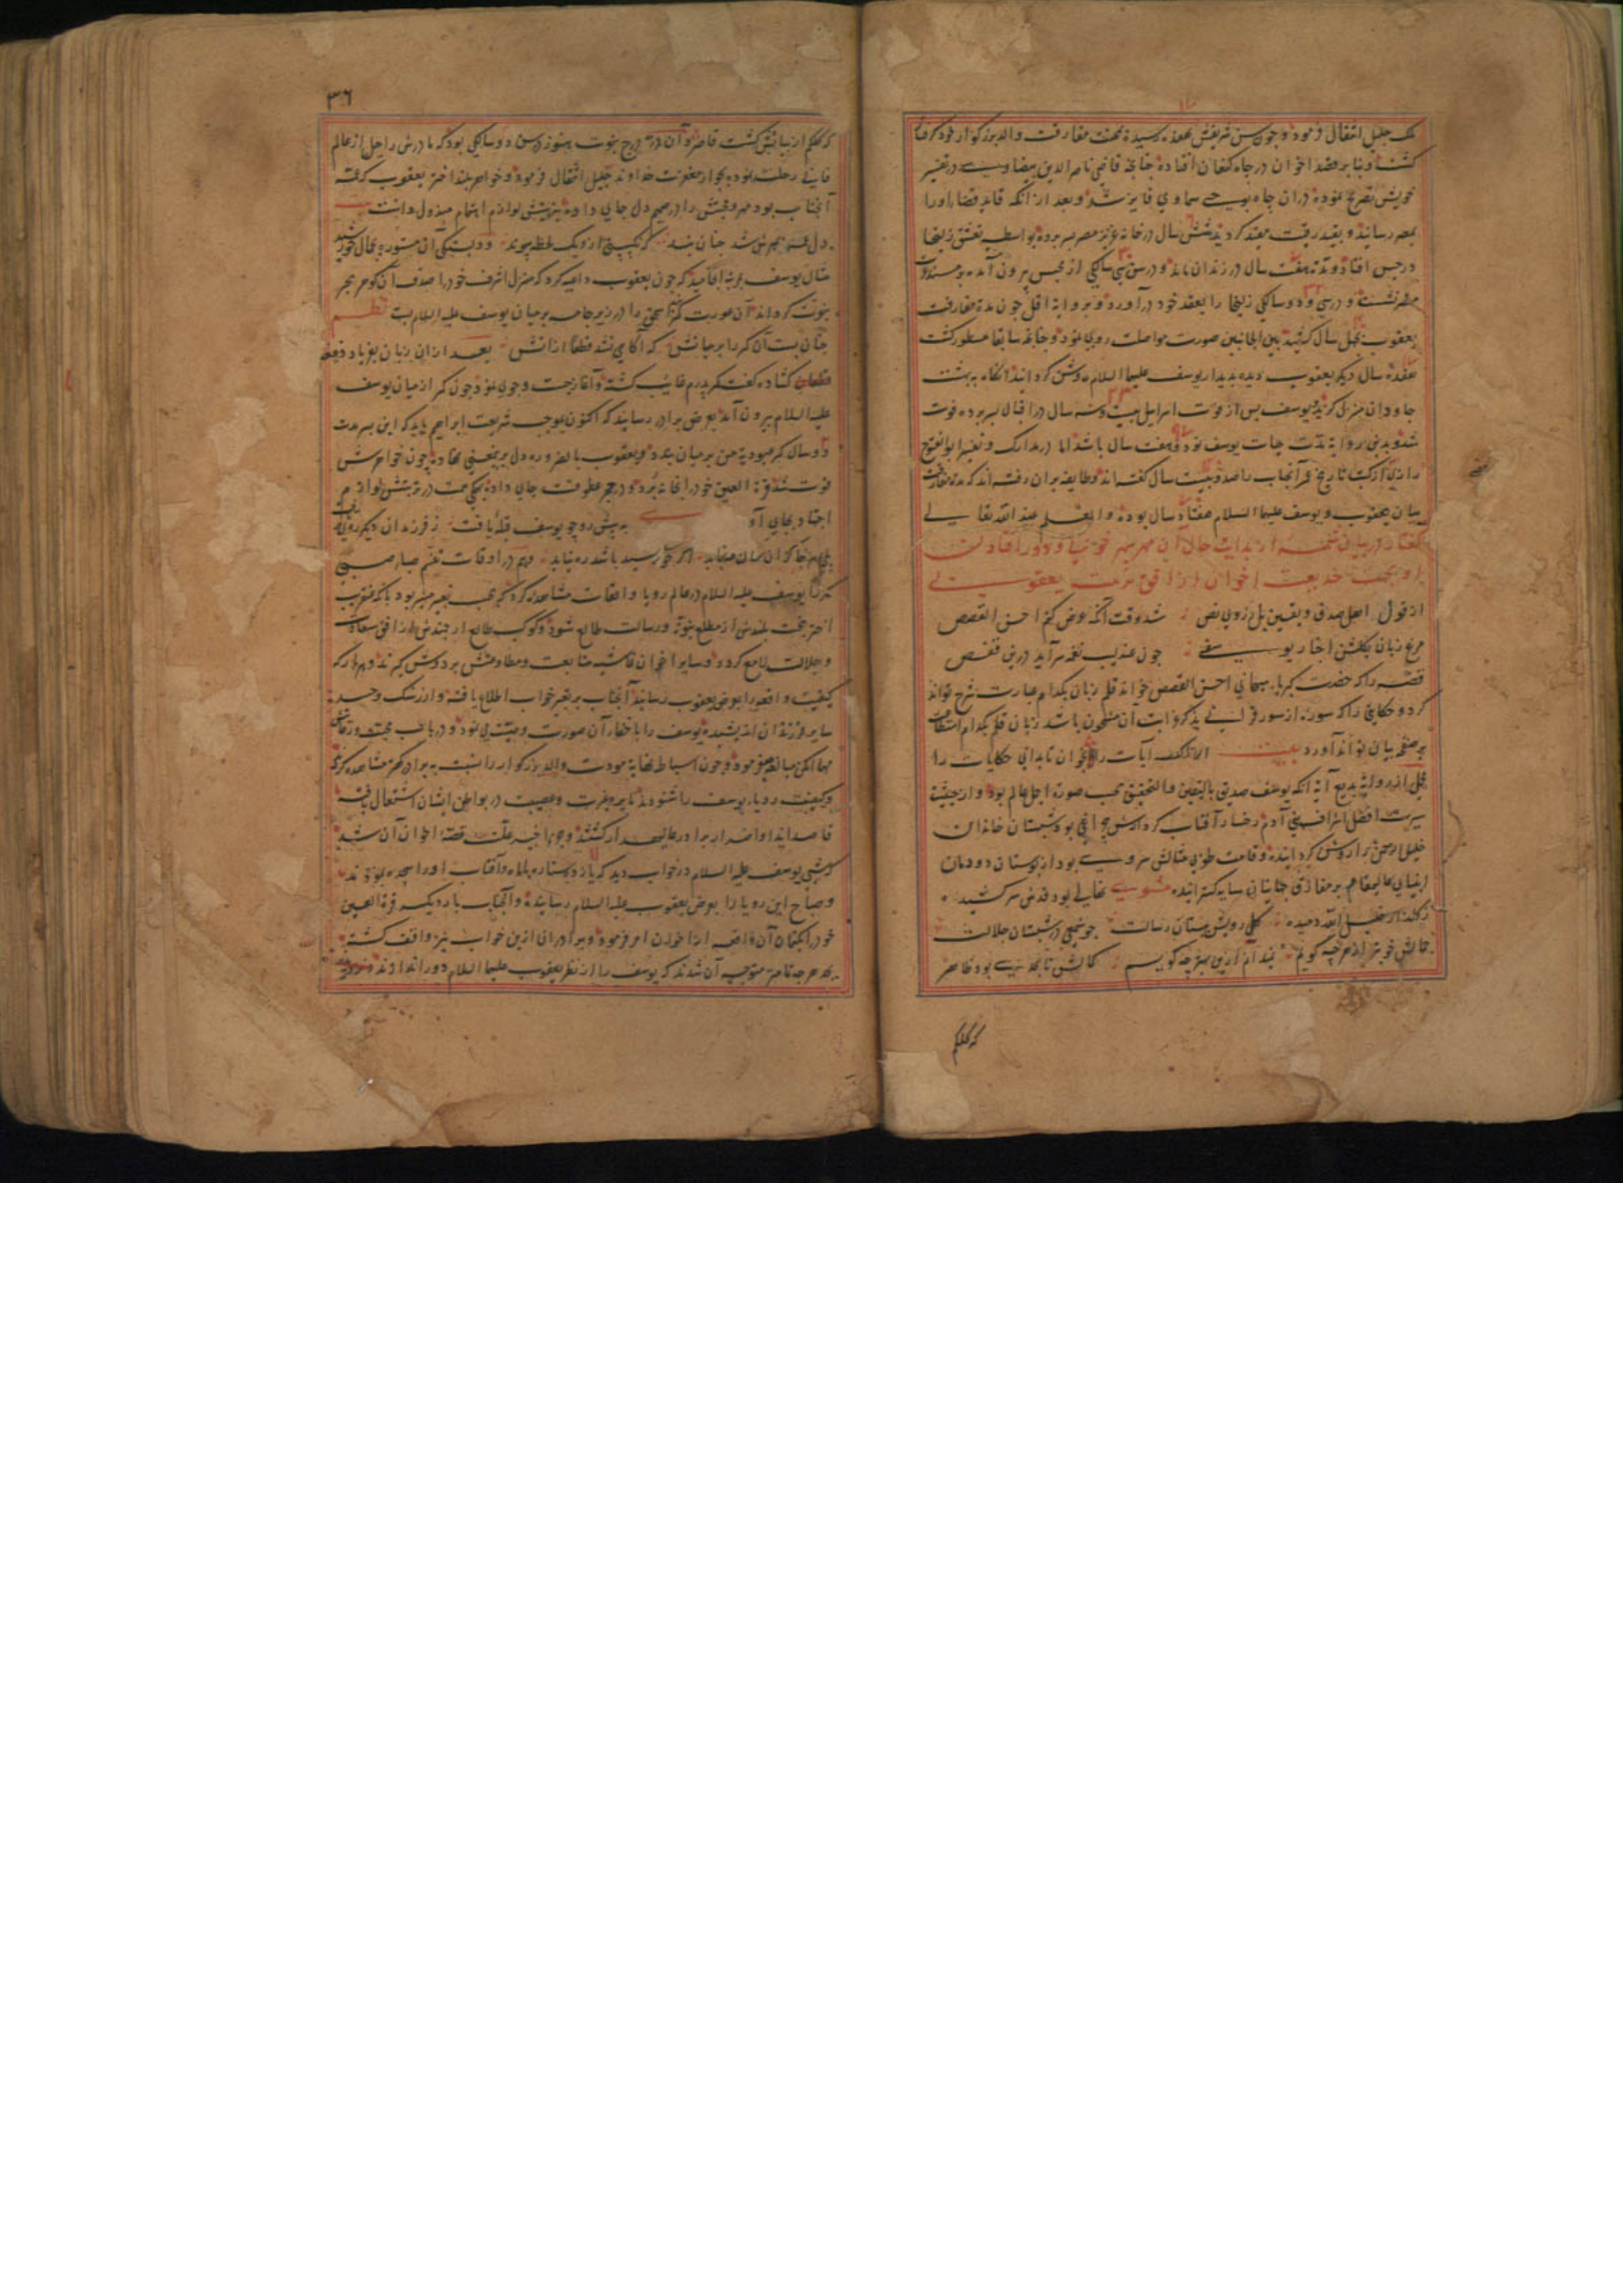 ملک جلیل انتقال فرمود و چون سن شریفش بهفده رسیده بمحنت مفارقت والد بزرگوار خود گرفتار
کشت و بنابر قصد اخوان در چاه کنعان افتاده چنانچه قاضی ناصر الدین بیضاوی در تفسیر
خویش تصریح نموده در ان چاه بوحی سماوی فایز شد و بعد از انکه قاید قضا اورا
بمصر رسانید و بقید رقیت مقید کردید شش سال در خانه عزیز مصر بسر برده بواسطه تعشق زلیخا
در حبس افتاد و مدة هفت سال در زندان ماند و در سن سی سالکی از محبس بیرون آمده بر مسند
مصر نشست و در سی و دو سالکی زلیخا را بعقد خود در آورد و بروایة اقل چون مدة مفارقت
یعقوب بچهل سال کشید بین الجانبین صورت مواصلت روی نمود و چنانچه سابقا مسطور کشت
هفده سال دیکر یعقوب دیده بدیدار یوسف علیهما السلام روشن کردانید انکاه به بهشت
جاودان منزل کزید و یوسف پس از فوت اسرایل بیست و سه سال در اقبال بسر برده فوت
شد و بدین روایة مدت حیات یوسف نود و هفت سال باشد اما در مدارک و تفسیر ابو الفتوح
رازی از کتب تاریخ عمر آنجناب را صد و بیست سال کفته اند و طایفه بران رفته اند که مدة مفارقت
میان یعقوب و یوسف علیهما السلام هفتاد سال بوده و العلم عند الله تعالی
کفتار در بیان شمه از بدایت حال آن مهر سپهر خوبی و دور افتادن
او بجهت خدیعت اخوان از افق تربیت یعقوبی
از قول اهل صدق و یقین بل ز روی نص شد وقت آنکه عرض کنم احسن القصص
مرغ زبان بکلشن اخبار یوسفی چون عندلیب نغمه سراید درین قفص
قصه را که حضرت کبریا سبحانی احسن القصص خواند قلم زبان بکدام عبارت شرح تواند
کرد و حکایتی را که سوره از سور قرآنی بذکر روایت آن مشحون باشد زبان قلم بکدام استطاعت
بر صفحه بیان تواند آورد بیت ایات را بخوان تا بدانی حکایات را
آنکه یوسف صدیق بالیقین و التحقیق بحسب صورة اجمل عالم بود و از حیثیت
سیرت افضل اشراف بنی آدم رخسار آفتاب کردارش چراغی بود شبستان خاندان
خلیل الرحمن را روشن کردانیده و قامت طوبی مثالش سروی بود از بوستان دودمان
انبیای عالیمقام بر مفارق جهانیان سایه کسترانیده مثنوی نهالی بود قدش سر کشیده
ز کلزار خلیل الله دمیده کلی رویش بستان رسالت چو شمعی در شبستان جلالت
جمالش خوبتر از هر چه کویم ندانم از این بهتر چه کویم کمالش تا بحدی بود ظاهر
که کلکم
۳۶
که کلکم از بیانش کشت قاصر و آن در درج نبوت هنوز در سن دو سالکی بود که مادرش راحیل از عالم
فانی رحلت نموده بجوار مغفرت خداوند جلیل انتقال فرمود و خواهر بلند اختر یعقوب که عمه
آنجناب بود مهر و محبتش را در صمیم دل جای داده بتربیتش لوازم اهتمام مبذول داشت
دل عمه بمهرش شد چنان بند که نکسستی ازو یک لحظه پیوند و دلبستکی آن مستوره بجمال خورشید
مثال یوسف بمرتبه انجامید که چون یعقوب داعیه کرد که منزل اشرف خود را صدف آن کوهر بحر
نبوت کرداند آن عورت کمر اسحق را در زیر جامه بر میان یوسف علیه السلام بست نظم
چنان بست آن کمر را بر میانش که آکاهی نشد قطعا ازانش بعد ازان زبان بفریاد و فغان
کشاده کفت کمر پدرم غایب کشته و آغاز جست و جوی نمود چون کمر از میان یوسف
علیه السلام بیرون آمد بعرض برادر رسانید که اکنون بموجب شریعت ابراهیم باید که این پسر مدت
دو سال کمر عبودیت من بر میان بندد و یعقوب بالضروره دل برین معنی نهاد و چون خواهرش
فوت شد قرة العین خود را بخانه برد و در حجر عطوفت جای داده بیکی همت در تربیتش لوازم
اجتهاد بجای آورد به پیش رو چو یوسف قبله یافت ز فرزندان دیکر روی
بهر جا کز آن سان مه نماید اکر خورشید باشد ره نیابد و هم در اوقات تنعم صباح صبی
کذر یوسف علیه السلام در عالم رویا واقعات مشاهده کرد که بحسب تعبیر مخبر بود بانکه عنقریب
اختر بخت بلندش از مطلع نبوة و رسالت طالع شود و کوکب طالع ارجمندش از افق سعادت
و جلالت لامع کردد و سایر اخوان غاشیه متابعت و مطاوعتش بر دوش کیرند و هر بار که
کیفیت واقعه را بعرض یعقوب رسانید آنجناب بر تعبیر خواب اطلاع یافته و از رشک و حسد
سایر فرزندان اندیشیده یوسف را باخفا آن صورت وصیت می نمود و در باب محبت و رعایتش
مهما امکن مبالغه می فرمود و چون اسباط نهایة مودت والد بزرکوار را نسبت به برادر کهتر مشاهده کردند
و کیفیت رویا یوسف را شنودند نایره غیرت و عصبیت در بواطن ایشان اشتعال یافته
قاصد ایذا و اضرار برادر عالیمقدار کشتند و جزء اخیر علت قصد اخوان آن شد
که شبی یوسف علیه السلام در خواب دید که یازده ستاره با ماه و آفتاب او را سجده نمودند
و صباح این رویا را بعرض یعقوب علیه السلام رسانیده و آنجناب بار دیکر قرة العین
خود را بکتمان آن واقعه از اخوان امر فرمود و برادران ازین خواب نیز واقف کشته
بجد هر چه تمامتر متوجه آن شدند که یوسف را از نظر یعقوب علیهما السلام دور اندازند